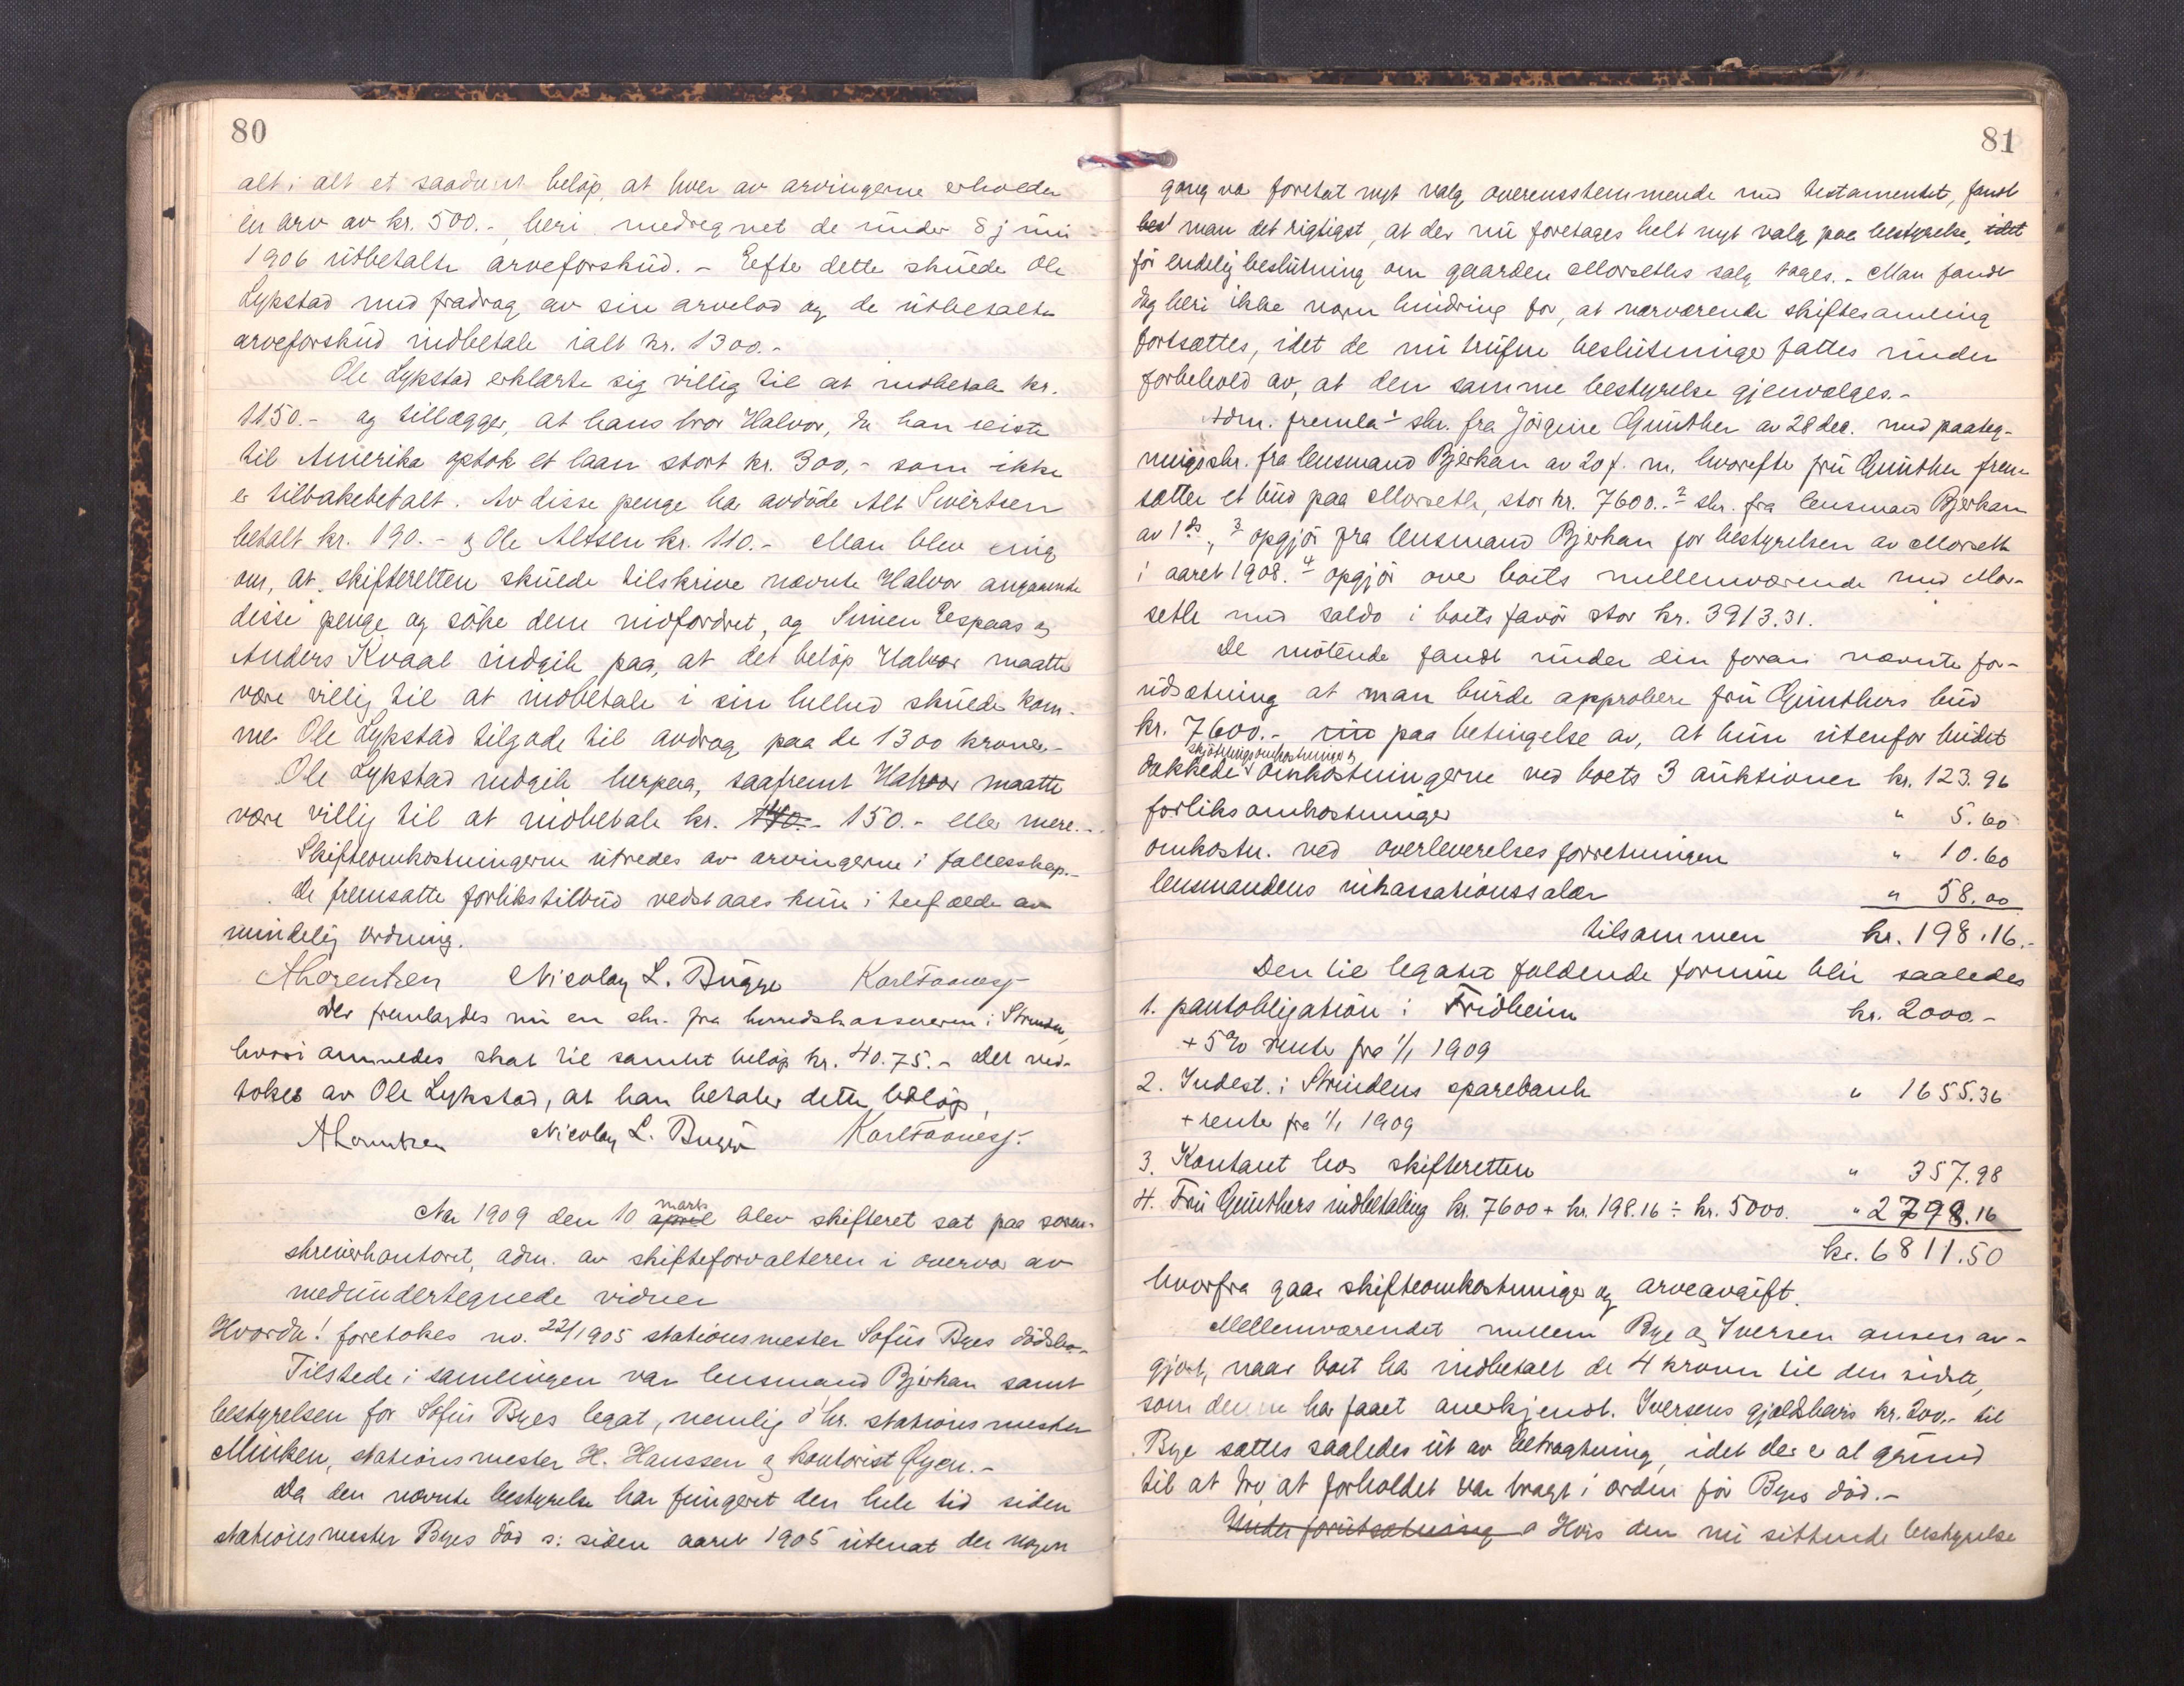 80
alt i alt et saadant beløp, at hver av arvingerne erholder
en arv av kr. 500.-, heri medregnet de under 8 juni
1906 utbetalte arveforskud. - Efter dette skulde Ole
Lykstad med fradrag av sin arvelod og de utbetalte
arveforskud indbetale ialt kr. 1300.-
Ole Lykstad erklærte sig villig til at indbetale kr.
1150.- og tillægger, at hans bror Halvor, da han reiste
til Amerika optok et laan stort kr. 300,- som ikke
er tilbakebetalt. Av disse penge har avdøde Alt Sivertsen
betalt kr. 190.- og Ole Altsen kr. 110.- Man blev enig
om, at skifteretten skulde tilskrive nævnte Halvor angaaende
disse penge og søke dem indfordret, og Simen Espaas og
Anders Kvaal indgik paa, at det beløp Halvor maatte
være villig til at indbetale i sin helhed skulde kom-
me Ole Lykstad tilgode til avdrag paa de 1300 kroner.-
Ole Lykstad indgik herpaa, saafremt Halvor maatte
være villig til at indbetale kr. 110.- 150.- eller mere.-
Skifteomkostningerne utredes av arvingerne i fællesskap.-
De fremsatte forlikstilbud vedstaaes kun i tilfælde av
mindelig ordning.
ALorentzen Nicolay L. Bugge Karl Faanes
Der fremlagdes nu en skr. fra herredskassereren i Strinden,
hvori anmeldes skat til samlet beløp kr. 40.75.- Det ved-
tokes av Ole Lykstad, at han betaler dette beløp,
ALorentzen Nicolay L. Bugge Karl Faanes
Aar 1909 den 10 april mars blev skifteret sat paa soren-
skriverkontoret, adm. av skifteforvalteren i overvær av
medundertegnede vidner
Hvorda! foretokes no. 22/1905 stationsmester Sofus Byes dødsbo.-
Tilstede i samlingen var lensmand Bjerkan samt
bestyrelsen for Sofus Byes legat, nemlig d'hr. stationsmester
Minken, stationsmester H. Hanssen og kontorist Øyen.-
Da den nævnte bestyrelse har fungeret den hele tid siden
stationsmester Byes død ɔ: siden aaret 1905 uten at der nogen
81
gang var foretat nyt valg overensstemmende med testamentet, fandt
man det rigtigst, at der nu foretages helt nyt valg paa bestyrelse, idet
før endelig beslutning om gaarden Morseths salg tages.- Man fandt
dog heri ikke nogen hindring for, at nærværende skiftesamling
fortsættes, idet de nu trufne beslutninger fattes under
forbehold av, at den samme bestyrelse gjenvælges.-
Adm. fremla 1 skr. fra Jørgine Günther av 28 dec. med paateg-
ningsskr. fra lensmand Bjerkan av 20 f. m. hvorefter fru Günther frem
sætter et bud paa Morseth, stor kr. 7600.- 2 skr. fra lensmand Bjerkan
av 1 ds., 3 opgjør fra lensmand Bjerkan for bestyrelsen av Morseth
i aaret 1908. 4 opgjør over boets mellemværende med Mor-
seth med saldo i boets favør stor kr. 3913.31.
De møtende fandt under den foran nævnte for-
udsætning at man burde approbere fru Günthers bud
kr. 7600.- paa betingelse av, at hun utenfor budet
skjøtningsomkostninger
dækkede omkostningerne ved boets 3 auktioner kr. 123.96
forliksomkostninger " 5.60
omkostn. ved overleverelsesforretningen " 10.60
lensmandens inkassationssalær " 58.00
tilsammen kr. 198.16.-
Den til legatet faldende formue blir saaledes
1. pantobligation i Fridheim kr. 2000.-
+ 5% rente fra 1/1 1909
2. Indest. i Strindens sparebank " 1655.36
+ rente fra 1/1 1909
3. Kontant hos skifteretten " 357.98
4. Fru Günthers indbetaling kr. 7600 + kr. 198.16 ÷ kr. 5000. " 2798.16
kr. 6811.50
hvorfra gaar skifteomkostninger og arveavgift.
Mellemværendet mellem Bye og Iversen ansees av-
gjort, naar boet har indbetalt de 4 kroner til den sidste,
som denne har faaet anerkjendt. Iversens gjældsbevis kr. 200.- til
Bye sættes saaledes ut av betragtning, idet der er al grund
til at tro at forholdet var bragt i orden før Byes død.-
Under forutsætning a Hvis den nu sittende bestyrelse